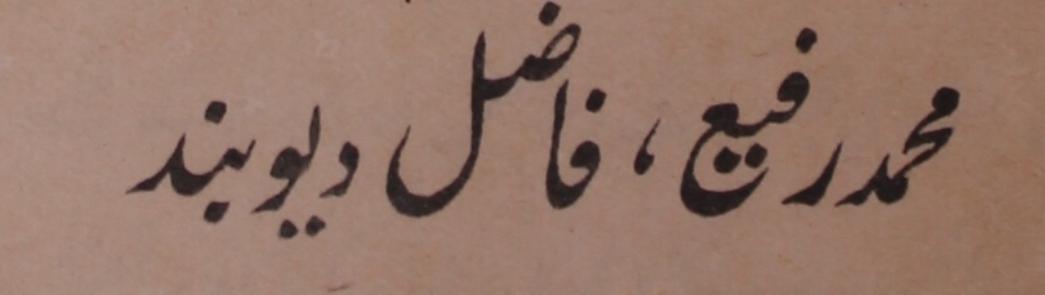 محمد رفیع ، فاضل دیوبند